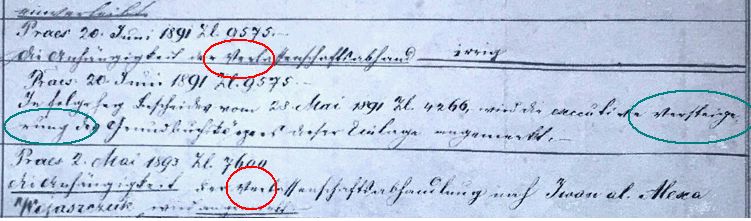 einverleibt
Praes 20. Juni 1891 Zl. 9575.-
die Anhängigkeit der Verlassenschaftsabhand irrig
Praes. 20. Juni 1891 Zl. 9575.-
In folge hg Bescheides vom 28 Mai 1891 Zl. 4266, wird die executive Versteige-
rung des Grundbuchskörpers dieser Einlage angemerkt.-
Praes 2. Mai 1893 Zl. 7600
die Anhängigkeit der Verlassenschaftsabhandlung nach Iwon al. Alexa
wird